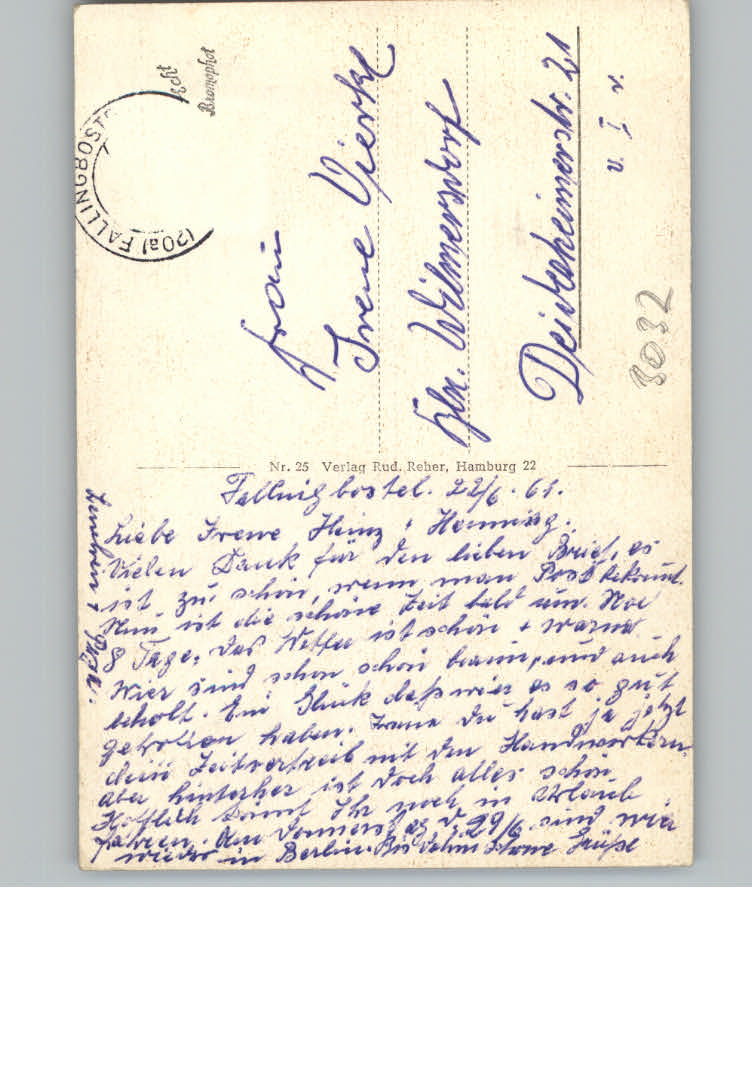 (20a) FALLINGBOST
Echt
Bromophot
Frau
Irene Vierke
Bln. Wilmersdorf
Deidesheimerstr. 21
v. I r.
3032
Nr. 25 Verlag Rud. Reher, Hamburg 22
Fallingbostel. 22/6. 61.
Liebe Irene Heinz + Henning.
Vielen Dank für den lieben Brief, es
ist zu schön, wenn man Post bekommt.
Nun ist die schöne Zeit bald um. Noc
8 Tage. Das Wetter ist schön + warm
Wier sind schon schön braun, und auch
erholt. Ein Glück dass wier es so gut
getroffen haben. Irene du hast ja jetzt
dein Zeitvertreib mit den Handwerkern
aber hinterher ist doch alles schön
Hofflich könnt Ihr noch in Urlaub
fahren. Am Donnerstag d. 29/6 sind wier
wieder in Berlin. Bis dahin Grüße